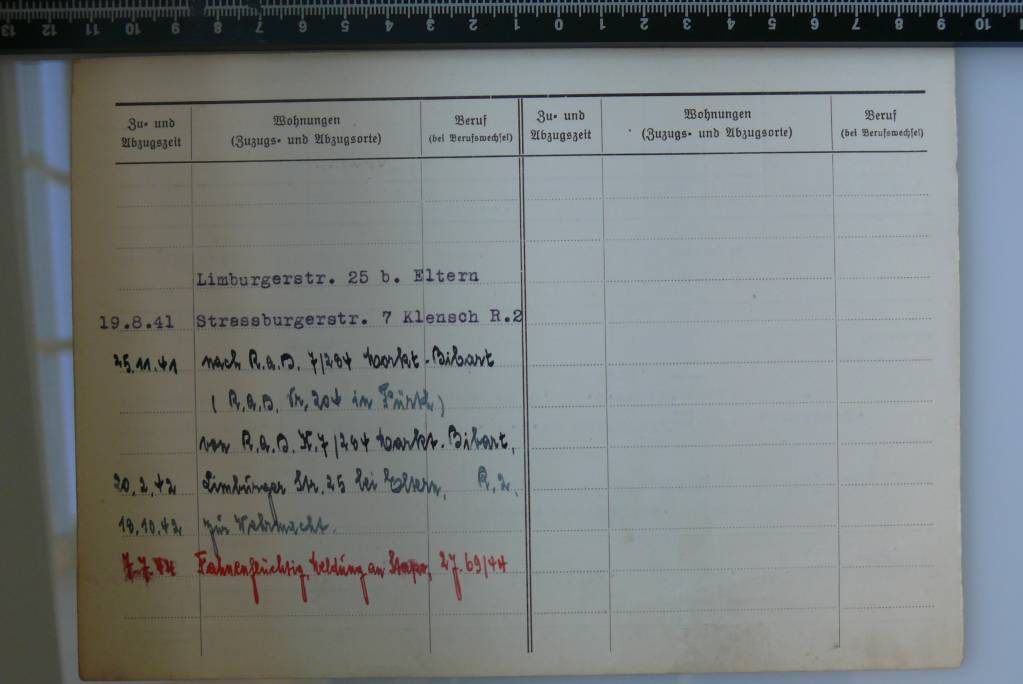 13 12 11 10 9 8 7 6 5 4 3 2 1 0 1 2 3 4 5 6 7 8 9 10
Zu- und Abzugszeit
Wohnungen (Zuzugs- und Abzugsorte)
Beruf (bei Berufswechsel)
Zu- und Abzugszeit
Wohnungen (Zuzugs- und Abzugsorte)
Beruf (bei Berufswechsel)
Limburgerstr. 25 b. Eltern
19.8.41 Strassburgerstr. 7 Klensch R.2
25.11.41 nach R.a.D. 7/204 Markt-Bibart
( R.a.D. Nr. 204 in Fürth)
von R.a.D. K.7/204 Markt-Bibart,
20.2.42 Limburger Str. 25 bei Eltern, R.2.
18.10.42 zur Wehrmacht.
7.7.44 Fahnenflüchtig, Meldung an Stapo, 27.69/44